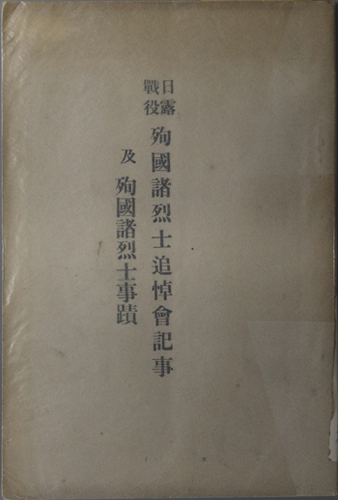 日露戰役 殉國諸烈士追悼會記事
及 殉國諸烈士事蹟